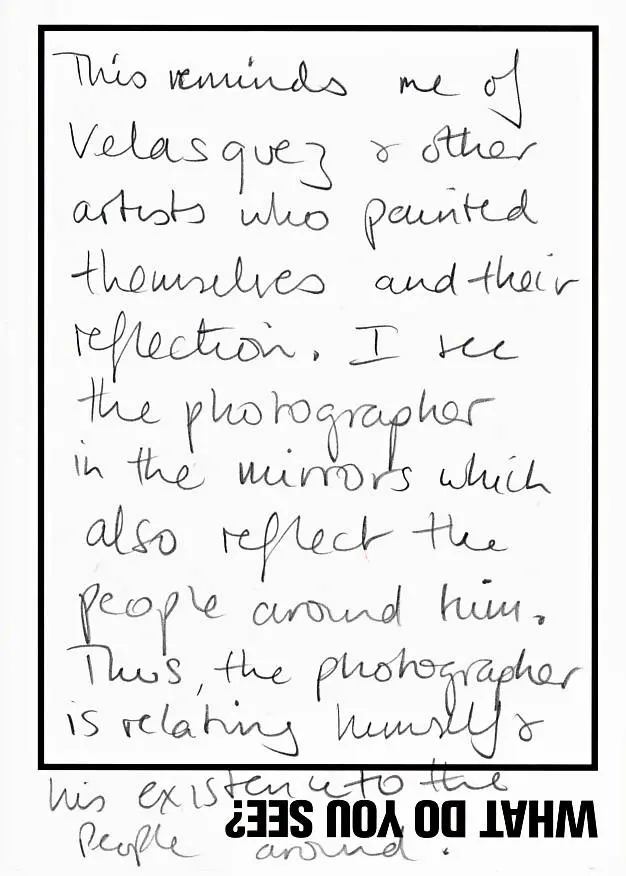 This reminds me of
Velasquez & other
artists who painted
themselves and their
reflection. I see
the photographer
in the mirrors which
also reflect the
people around him.
Thus, the photographer
is relating himself &
his existence to the
people around.
WHAT DO YOU SEE?